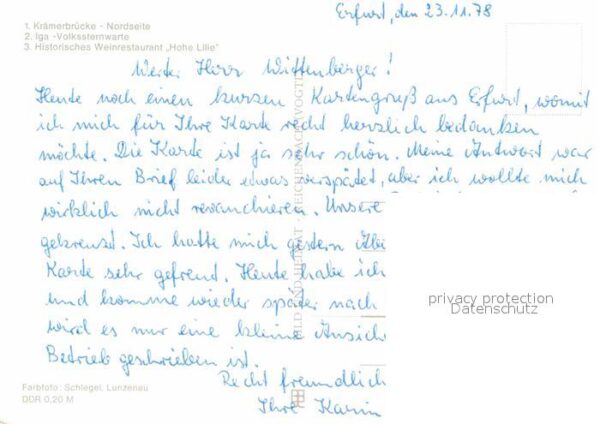 1. Krämerbrücke - Nordseite
2. Iga -Volkssternwarte
3. Historisches Weinrestaurant „Hohe Lilie"
Erfurt, den 23.11.78
Werter Herr Wüttenberger!
Heute noch einen kurzen Kartengruß aus Erfurt, womit
ich mich für Ihre Karte recht herzlich bedanken
möchte. Die Karte ist ja sehr schön. Meine Antwort war
auf Ihren Brief leider etwas verspätet, aber ich wollte mich
wirklich nicht revanchieren. Unsere
gekreuzt. Ich hatte mich gestern
Karte sehr gefreut. Heute habe ich
und komme wieder später nach
wird es nur eine kleine Ansich
Betrieb geschrieben ist.
Recht freundlich
Ihre Karin
Farbfoto: Schlegel, Lunzenau
DDR 0,20 M
BILD UND HEIMAT REICHENBACH VOGTL
privacy protection
Datenschutz